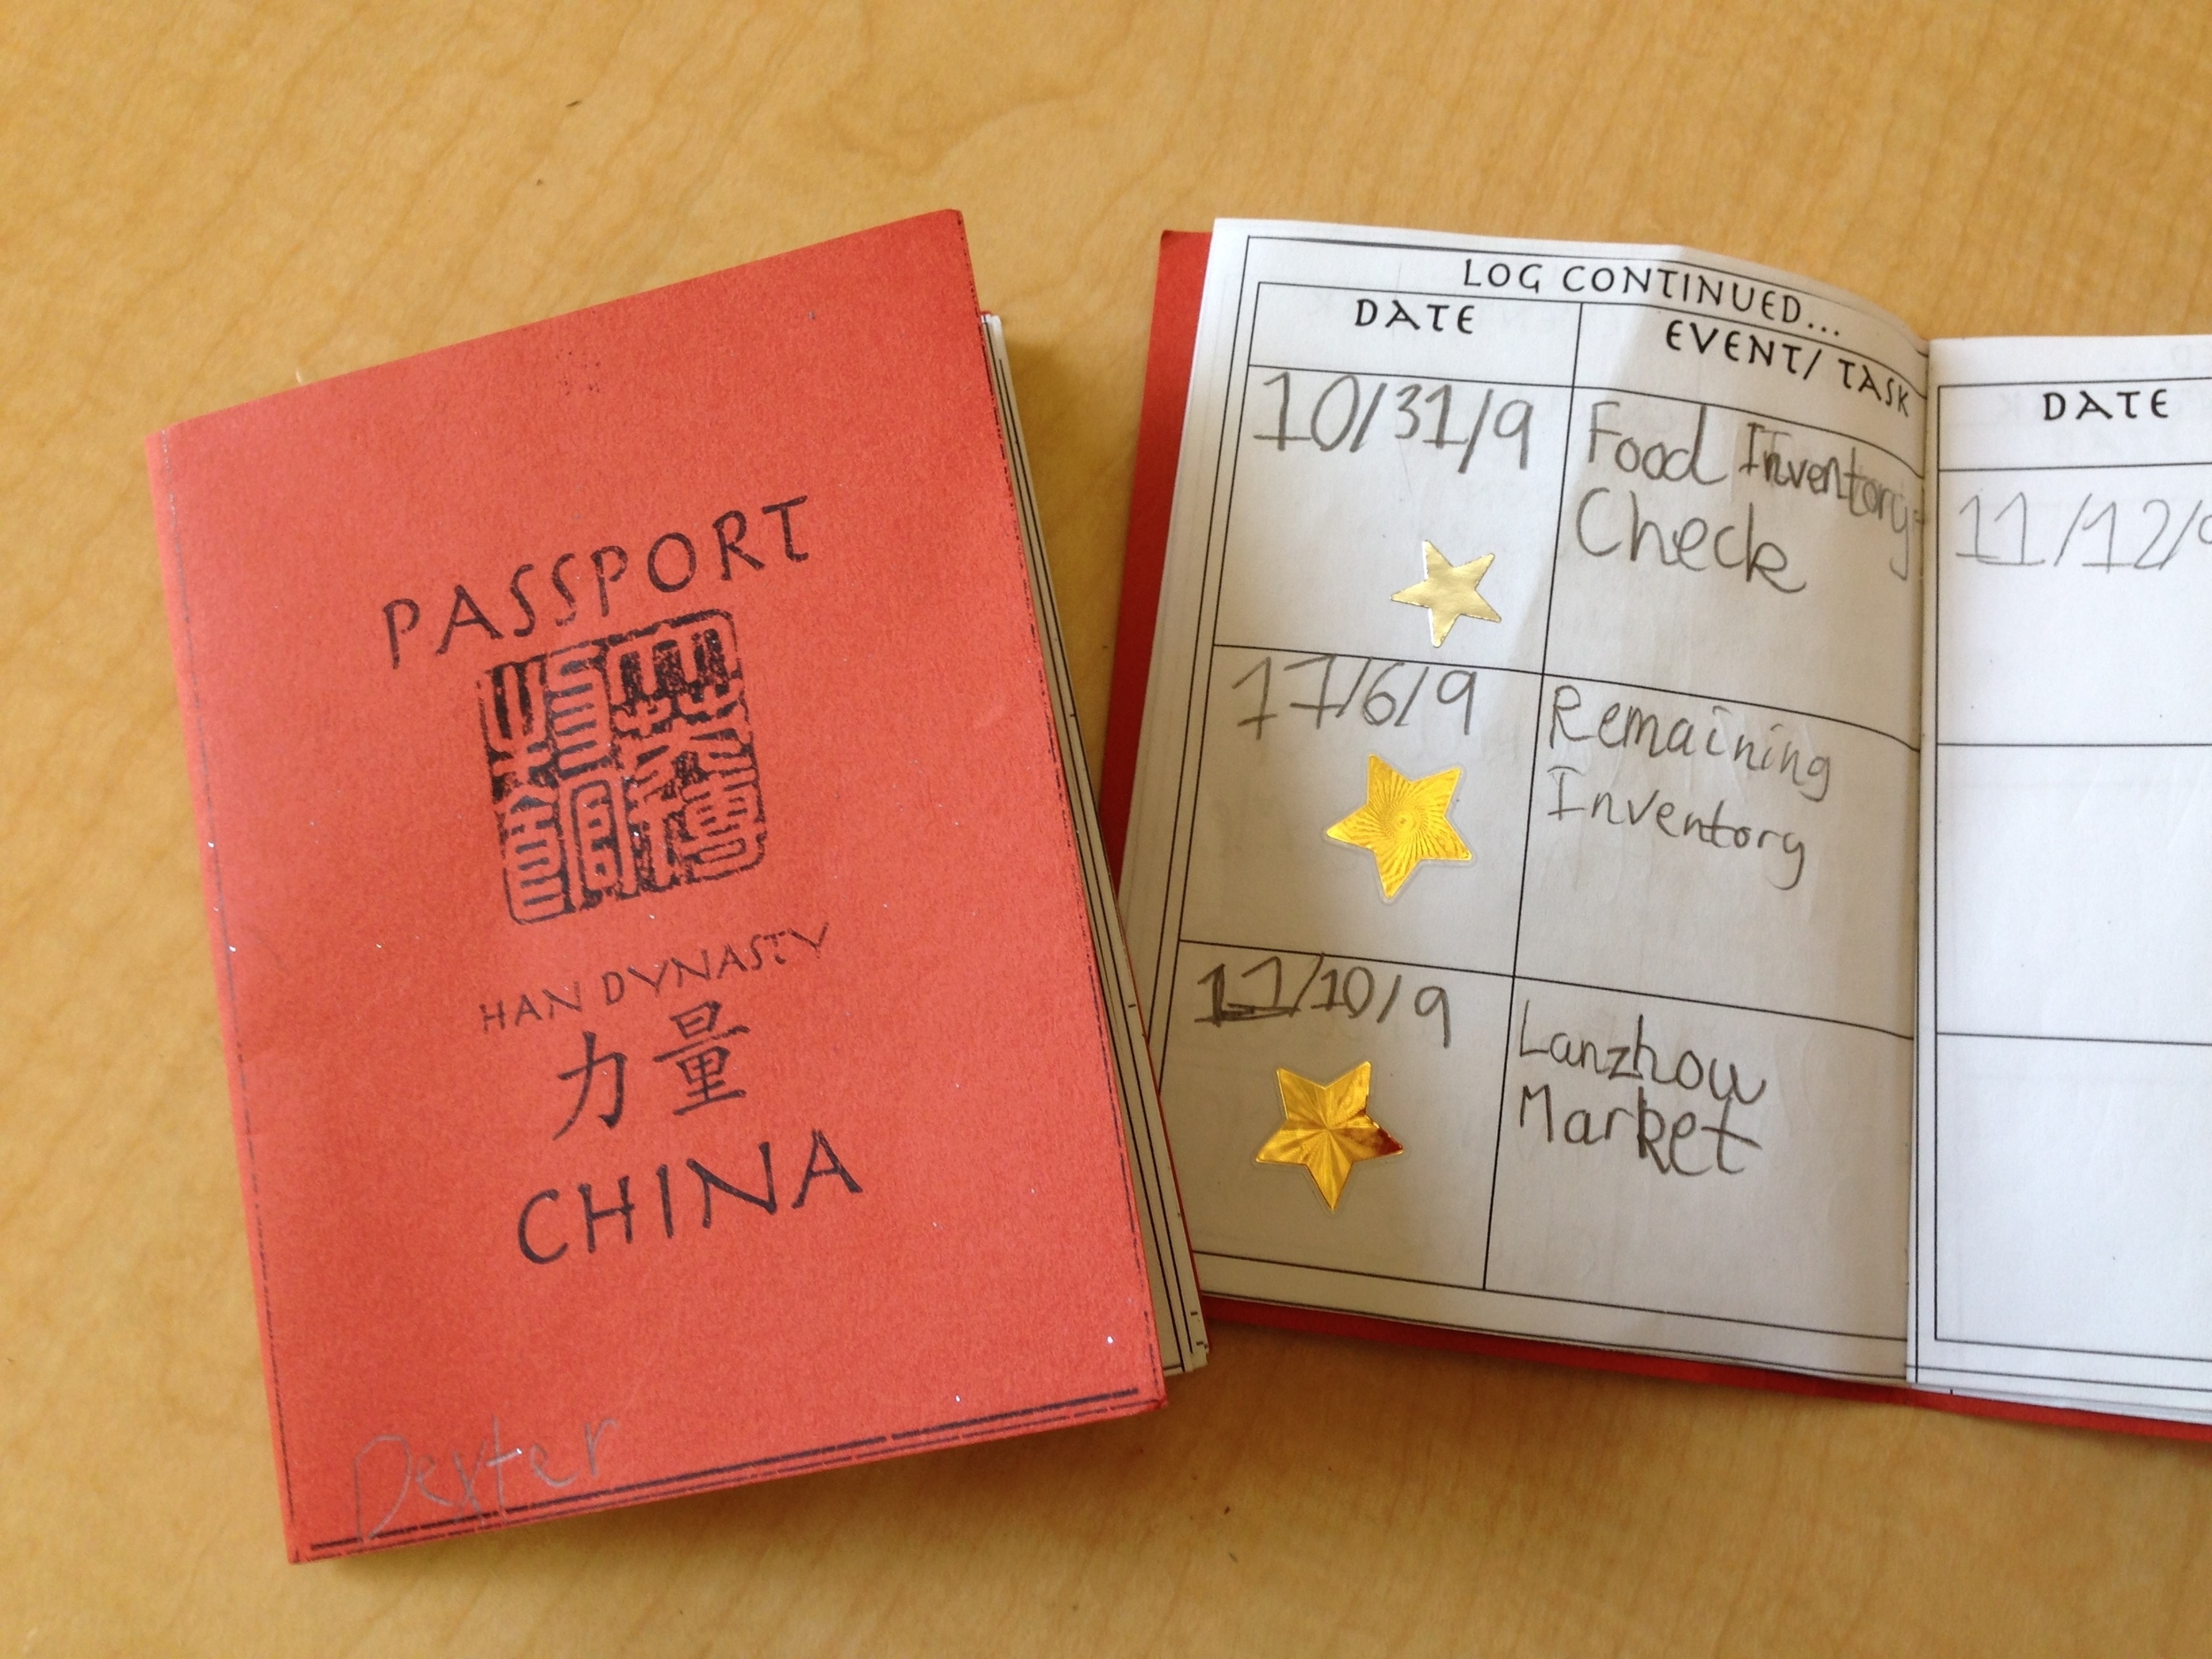 PASSPORT
HAN DYNASTY
力量
CHINA
Dexter
LOG CONTINUED...
DATE
EVENT/ TASK
10/31/9
Food Inventory
Check
11/6/9
Remaining
Inventory
11/10/9
Lanzhou
Market
DATE
11/12/